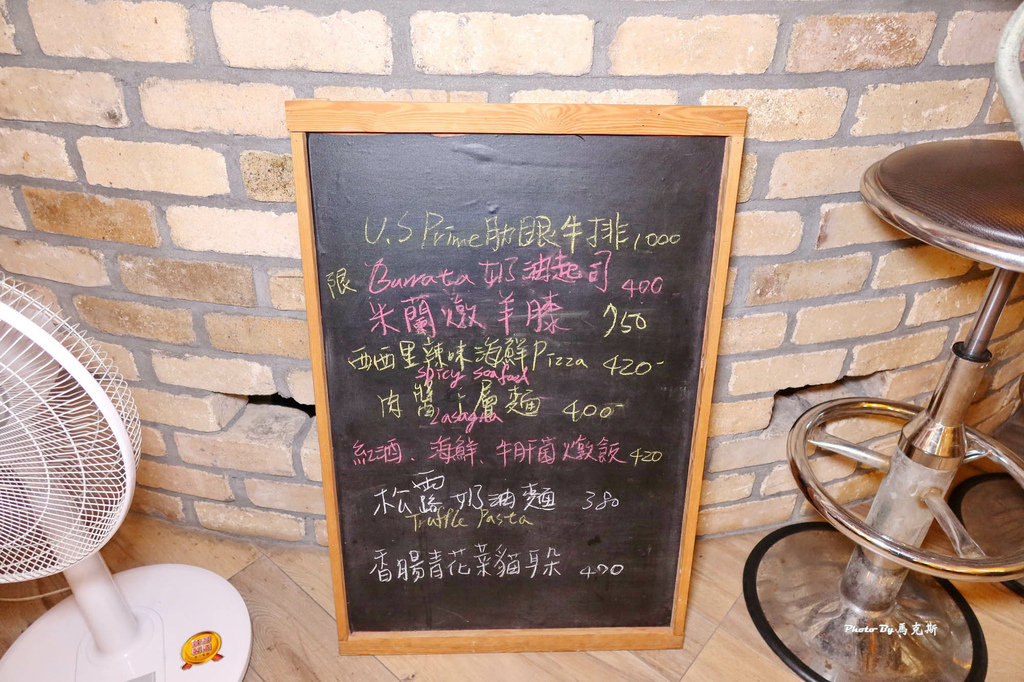 U.S Prime 肋眼牛排 1000
限 Burrata 奶油起司 400
米蘭燉羊膝 750
西西里辣味海鮮Pizza 420-
spicy seafood
肉醬千層麵 400-
Lasagna
紅酒、海鮮、牛肝菌燉飯 420
松露奶油麵 380
Truffle Pasta
香腸青花菜貓耳朵
Photo By 馬克斯